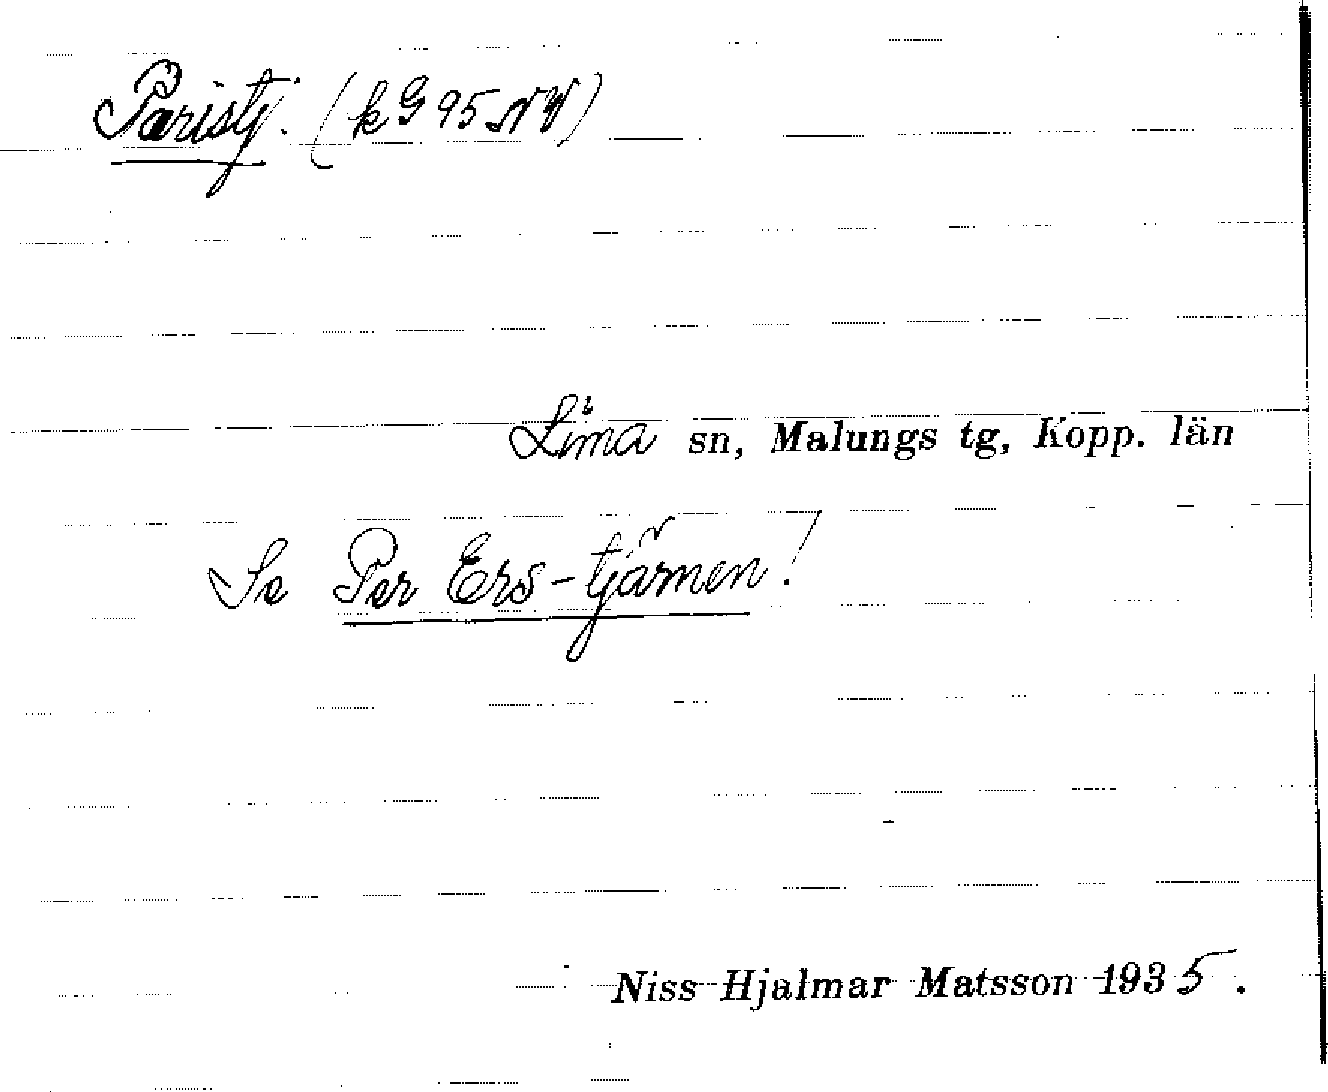 Paristj. (k G 95 NV)
Lima sn, Malungs tg, Kopp. län
Se Per Ers-tjärnen!
Niss Hjalmar Matsson 1935.